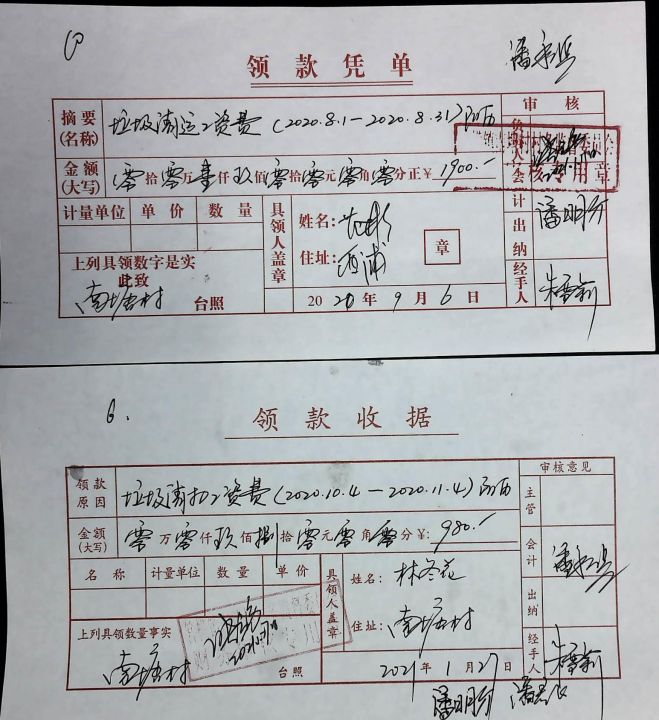 领款凭单
审核
摘要(名称) 垃圾清运工资费(2020.8.1-2020.8.31)
金额(大写) 零拾零万壹仟玖佰零拾零元零角零分正¥1900.-
会计
计量单位 单价 数量
具领人盖章
姓名:
住址:西浦
章
出纳 潘明分
上列具领数字是实
此致
南塘村 台照
2020年9月6日
经手人
6.
领款收据
审核意见
领款原因 垃圾清扫工资费(2020.10.4-2020.11.4)
主管
金额(大写) 零万零仟玖佰捌拾零元零角零分¥:980.-
会计
名称 计量单位 数量 单价
具领人盖章
姓名:林冬花
住址:南塘村
出纳
上列具领数量事实
南塘村 台照
2021年1月27日
经手人
潘明分